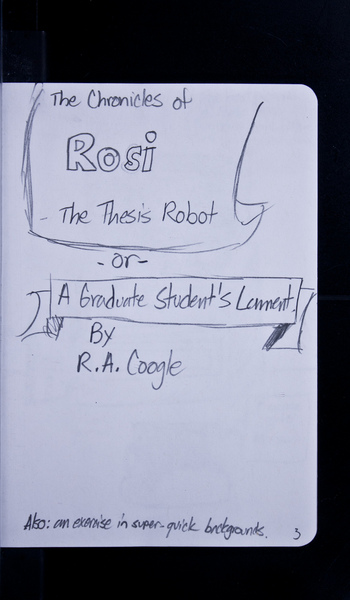 The Chronicles of
Rosi
- The Thesis Robot
- or -
A Graduate Student's Lament.
By
R.A. Coogle
Also: an exercise in super-quick backgrounds.
3